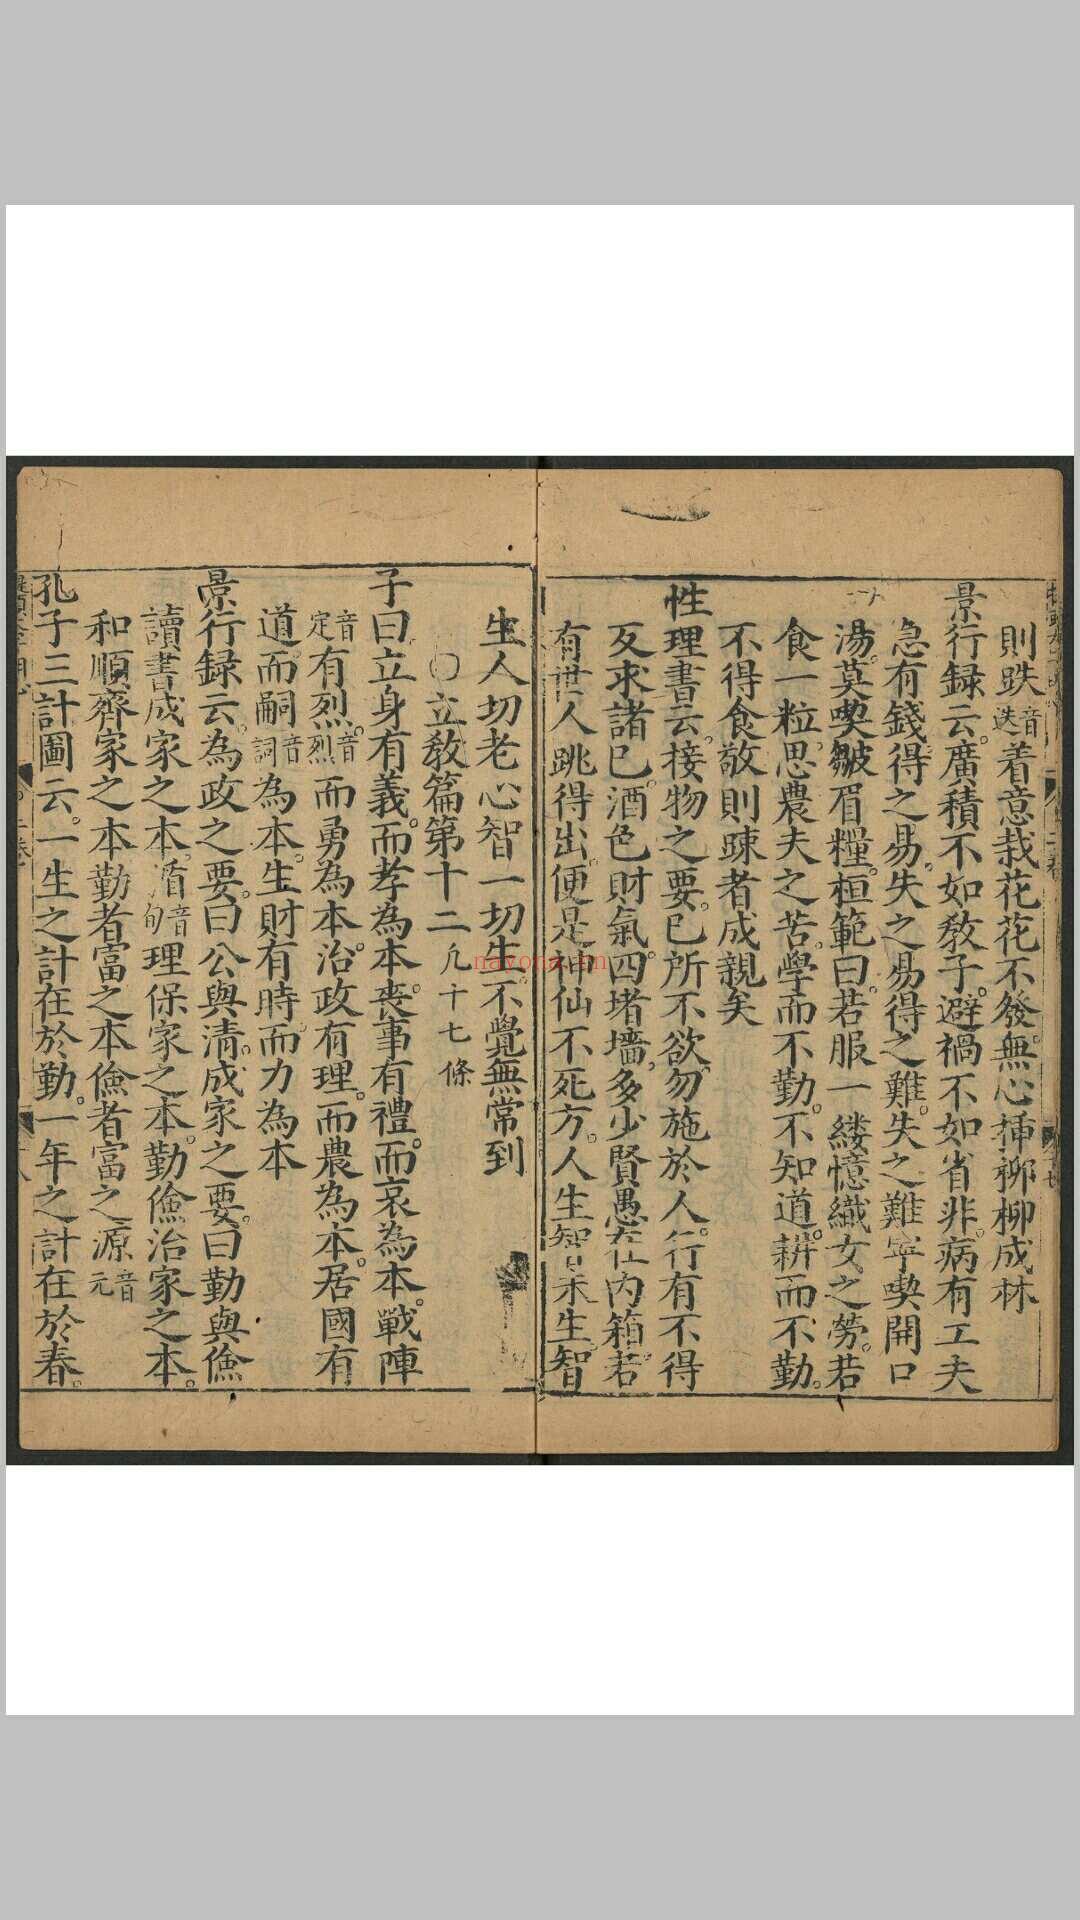 則跌音迭着意栽花花不發無心揷柳柳成林
景行録云廣積不如敎子避禍不如省非病有工夫
急有錢得之易失之易得之難失之難寧喫開口
湯莫喫皺眉糧桓範曰若服一縷憶織女之勞若
食一粒思農夫之苦學而不勤不知道耕而不勤
不得食敬則踈者成親矣
性理書云接物之要已所不欲勿施於人行有不得
反求諸已酒色財氣四堵墻多少賢愚在内箱若
有世人跳得出便是神仙不死方人生智未生智
生人切老心智一切生不覺無常到
〇立敎篇第十二凢十七條
子曰立身有義而孝為本喪事有禮而哀為本戰陣
音定有烈音烈而勇為本治政有理而農為本居國有
道而嗣音詞為本生財有時而力為本
景行録云為政之要曰公與清成家之要曰勤與儉
讀書成家之本循音旬理保家之本勤儉治家之本
和順齊家之本勤者富之本儉者富之源音元
孔子三計圖云一生之計在於勤一年之計在於春
nayona.cn